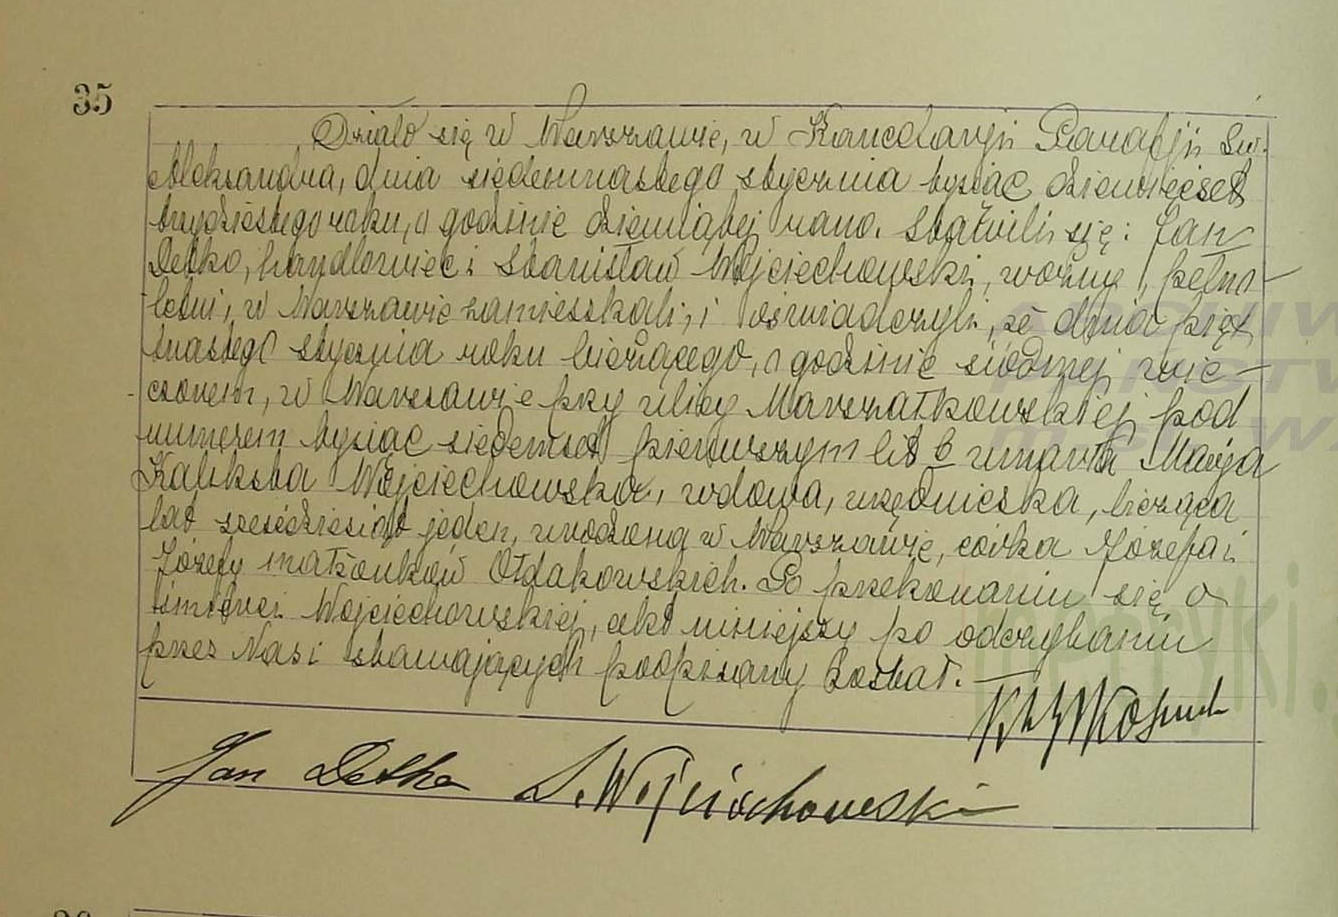 35
Działo się w Warszawie, w Kancelarji Parafji Św.
Aleksandra, dnia siedemnastego stycznia tysiąc dziewięćset
trzydziestego roku, o godzinie dziewiątej rano. Stawili się: Jan
Detko, handlowiec i Stanisław Wojciechowski, woźny, pełno-
letni, w Warszawie zamieszkali, i oświadczyli, że dnia pięt
nastego stycznia roku bieżącego, o godzinie siódmej wie-
czorem, w Warszawie przy ulicy Marszałkowskiej pod
numerem tysiąc siedemset pierwszym lit b umarła Marja
Kaliksta Wojciechowska, wdowa, urzędniczka, licząca
lat sześćdziesiąt jeden, urodzona w Warszawie, córka Józefa i
Józefy małżonków Ołdakowskich. Po przekonaniu się o
śmierci Wojciechowskiej, akt niniejszy po odczytaniu
przez Nas i stawających podpisany został.
Jan Detko S. Wojciechowski